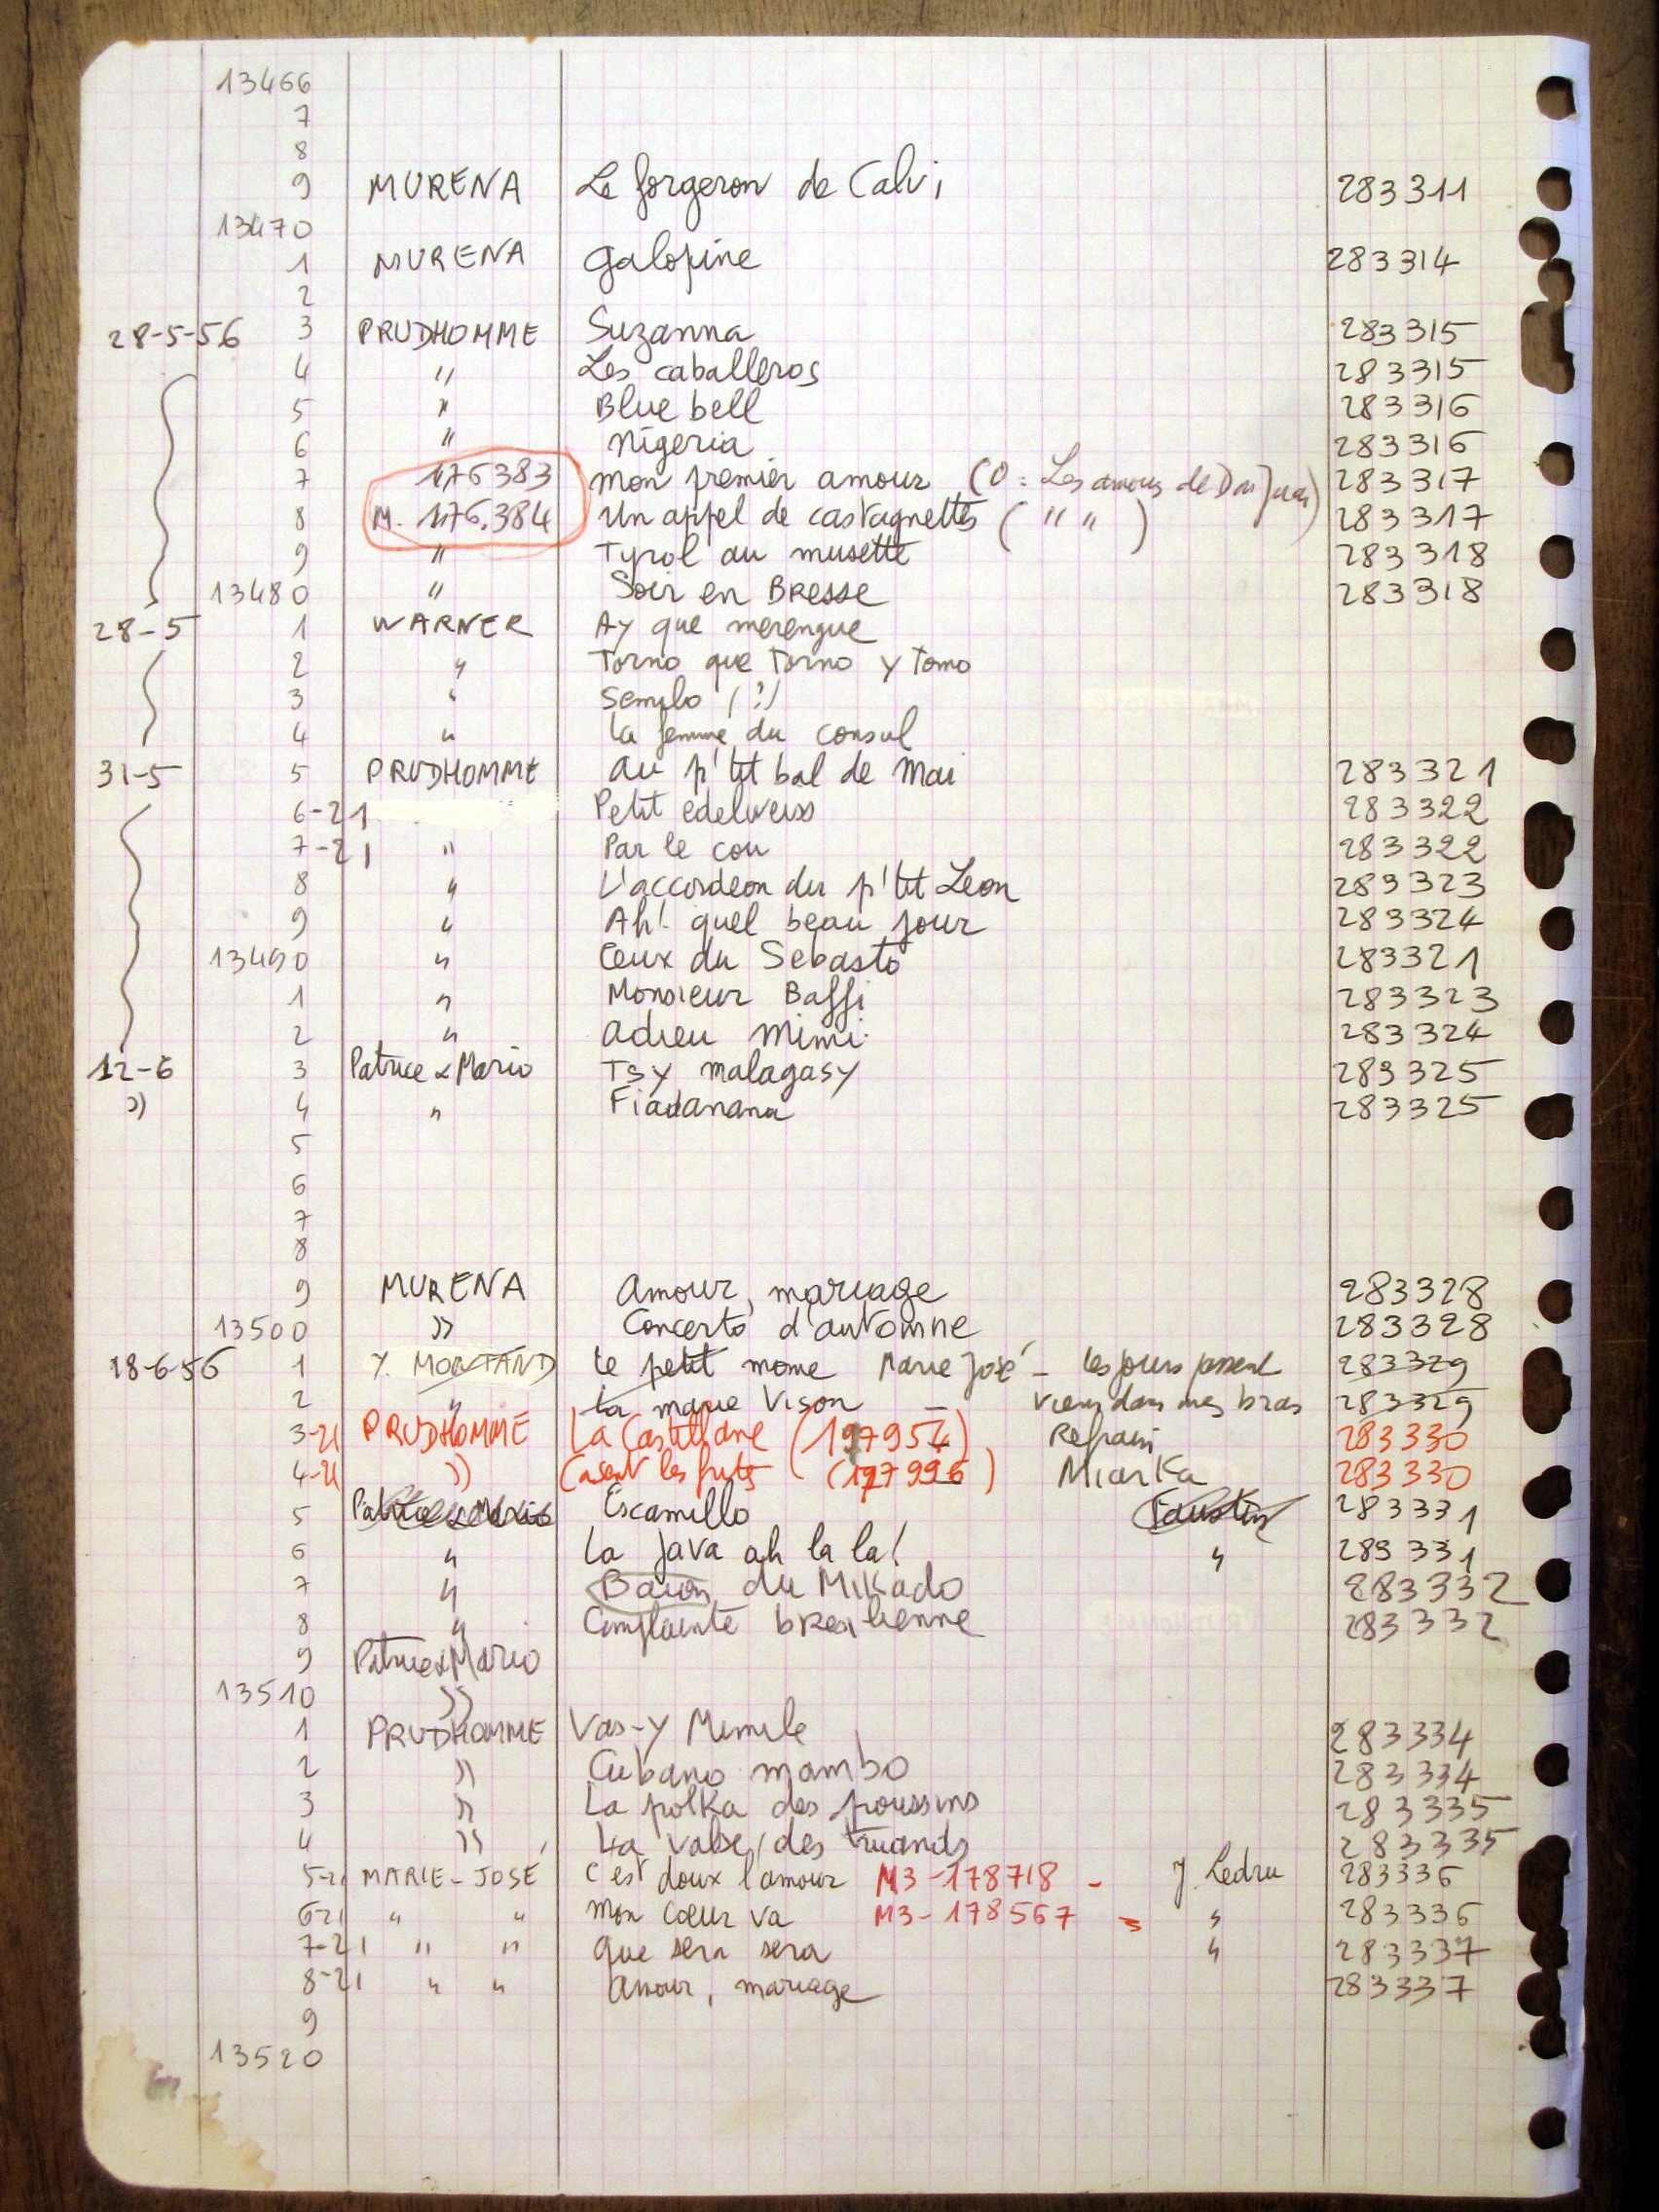 13466
7
8
9 MURENA Le forgeron de Calvi 283311
13470
1 MURENA Galopine 283314
2
28-5-56 3 PRUDHOMME Suzanna 283315
4 " Les caballeros 283315
5 " Blue bell 283316
6 " Nigeria 283316
7 176383 Mon premier amour (O = Les amours de Don Juan) 283317
8 M. 176.384 Un appel de castagnettes ( " " ) 283317
9 " Tyrol au musette 283318
13480 " Soir en BResse 283318
28-5 1 WARNER Ay que merengue
2 " Torno que Torno y Tomo
3 " Semplo (?)
4 " La femme du consul
31-5 5 PRUDHOMME Au p'tit bal de Mai 283321
6-21 Petit edelweiss 283322
7-21 " Par le cou 283322
8 " L'accordeon du p'tit Leon 283323
9 " Ah! quel beau jour 283324
13490 " Ceux du Sebasto 283321
1 " Monsieur Baffi 283323
2 " Adieu Mimi 283324
12-6 3 Patrice & Mario Tsy malagasy 283325
" 4 " Fiadanana 283325
5
6
7
8
9 MURENA Amour, mariage 283328
13500 " Concerto d'automne 283328
18-6-56 1 Y. MONTAND Le petit mome Marie José - Les jours passent 283329
2 " La marie Vison - Viens dans mes bras 283329
3-21 PRUDHOMME La Castillane (197954) Refrain 283330
4-21 " (197996) MiarKa 283330
5 Patrice & Mario Escamillo Faustin 283331
6 " La Java ah la la! " 283331
7 " Baion du MiKado 283332
8 " Complainte bResilienne 283332
9 Patrice & Mario
13510 "
1 PRUDHOMME Vas-y Mimile 283334
2 " Cubano mambo 283334
3 " La polKa des poussins 283335
4 " La valse des truands 283335
5-21 MARIE-JOSÉ C'est doux l'amour M3-178718 - J. Ledru 283336
6-21 " " Mon coeur va M3-178567 - " 283336
7-21 " " Que sera sera " 283337
8-21 " " Amour, mariage 283337
9
13520